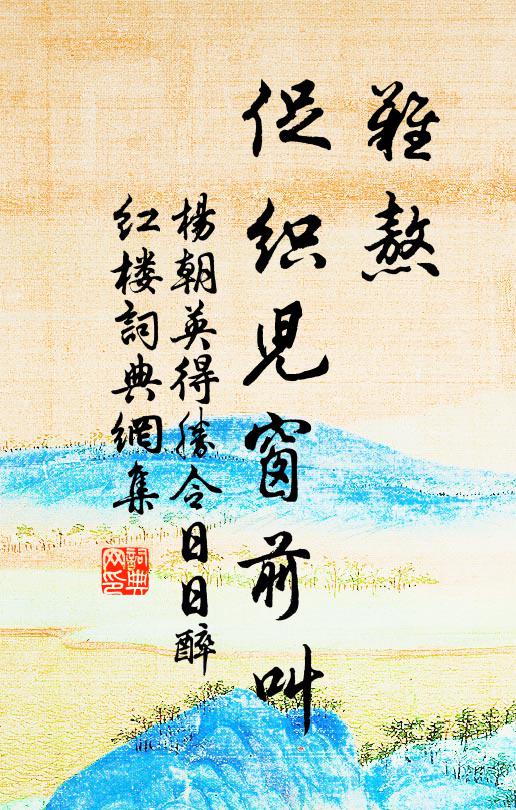 難熬
促织児窗前叫
楊朝英得勝令日日醉
红楼詞典網集
詞典
网印